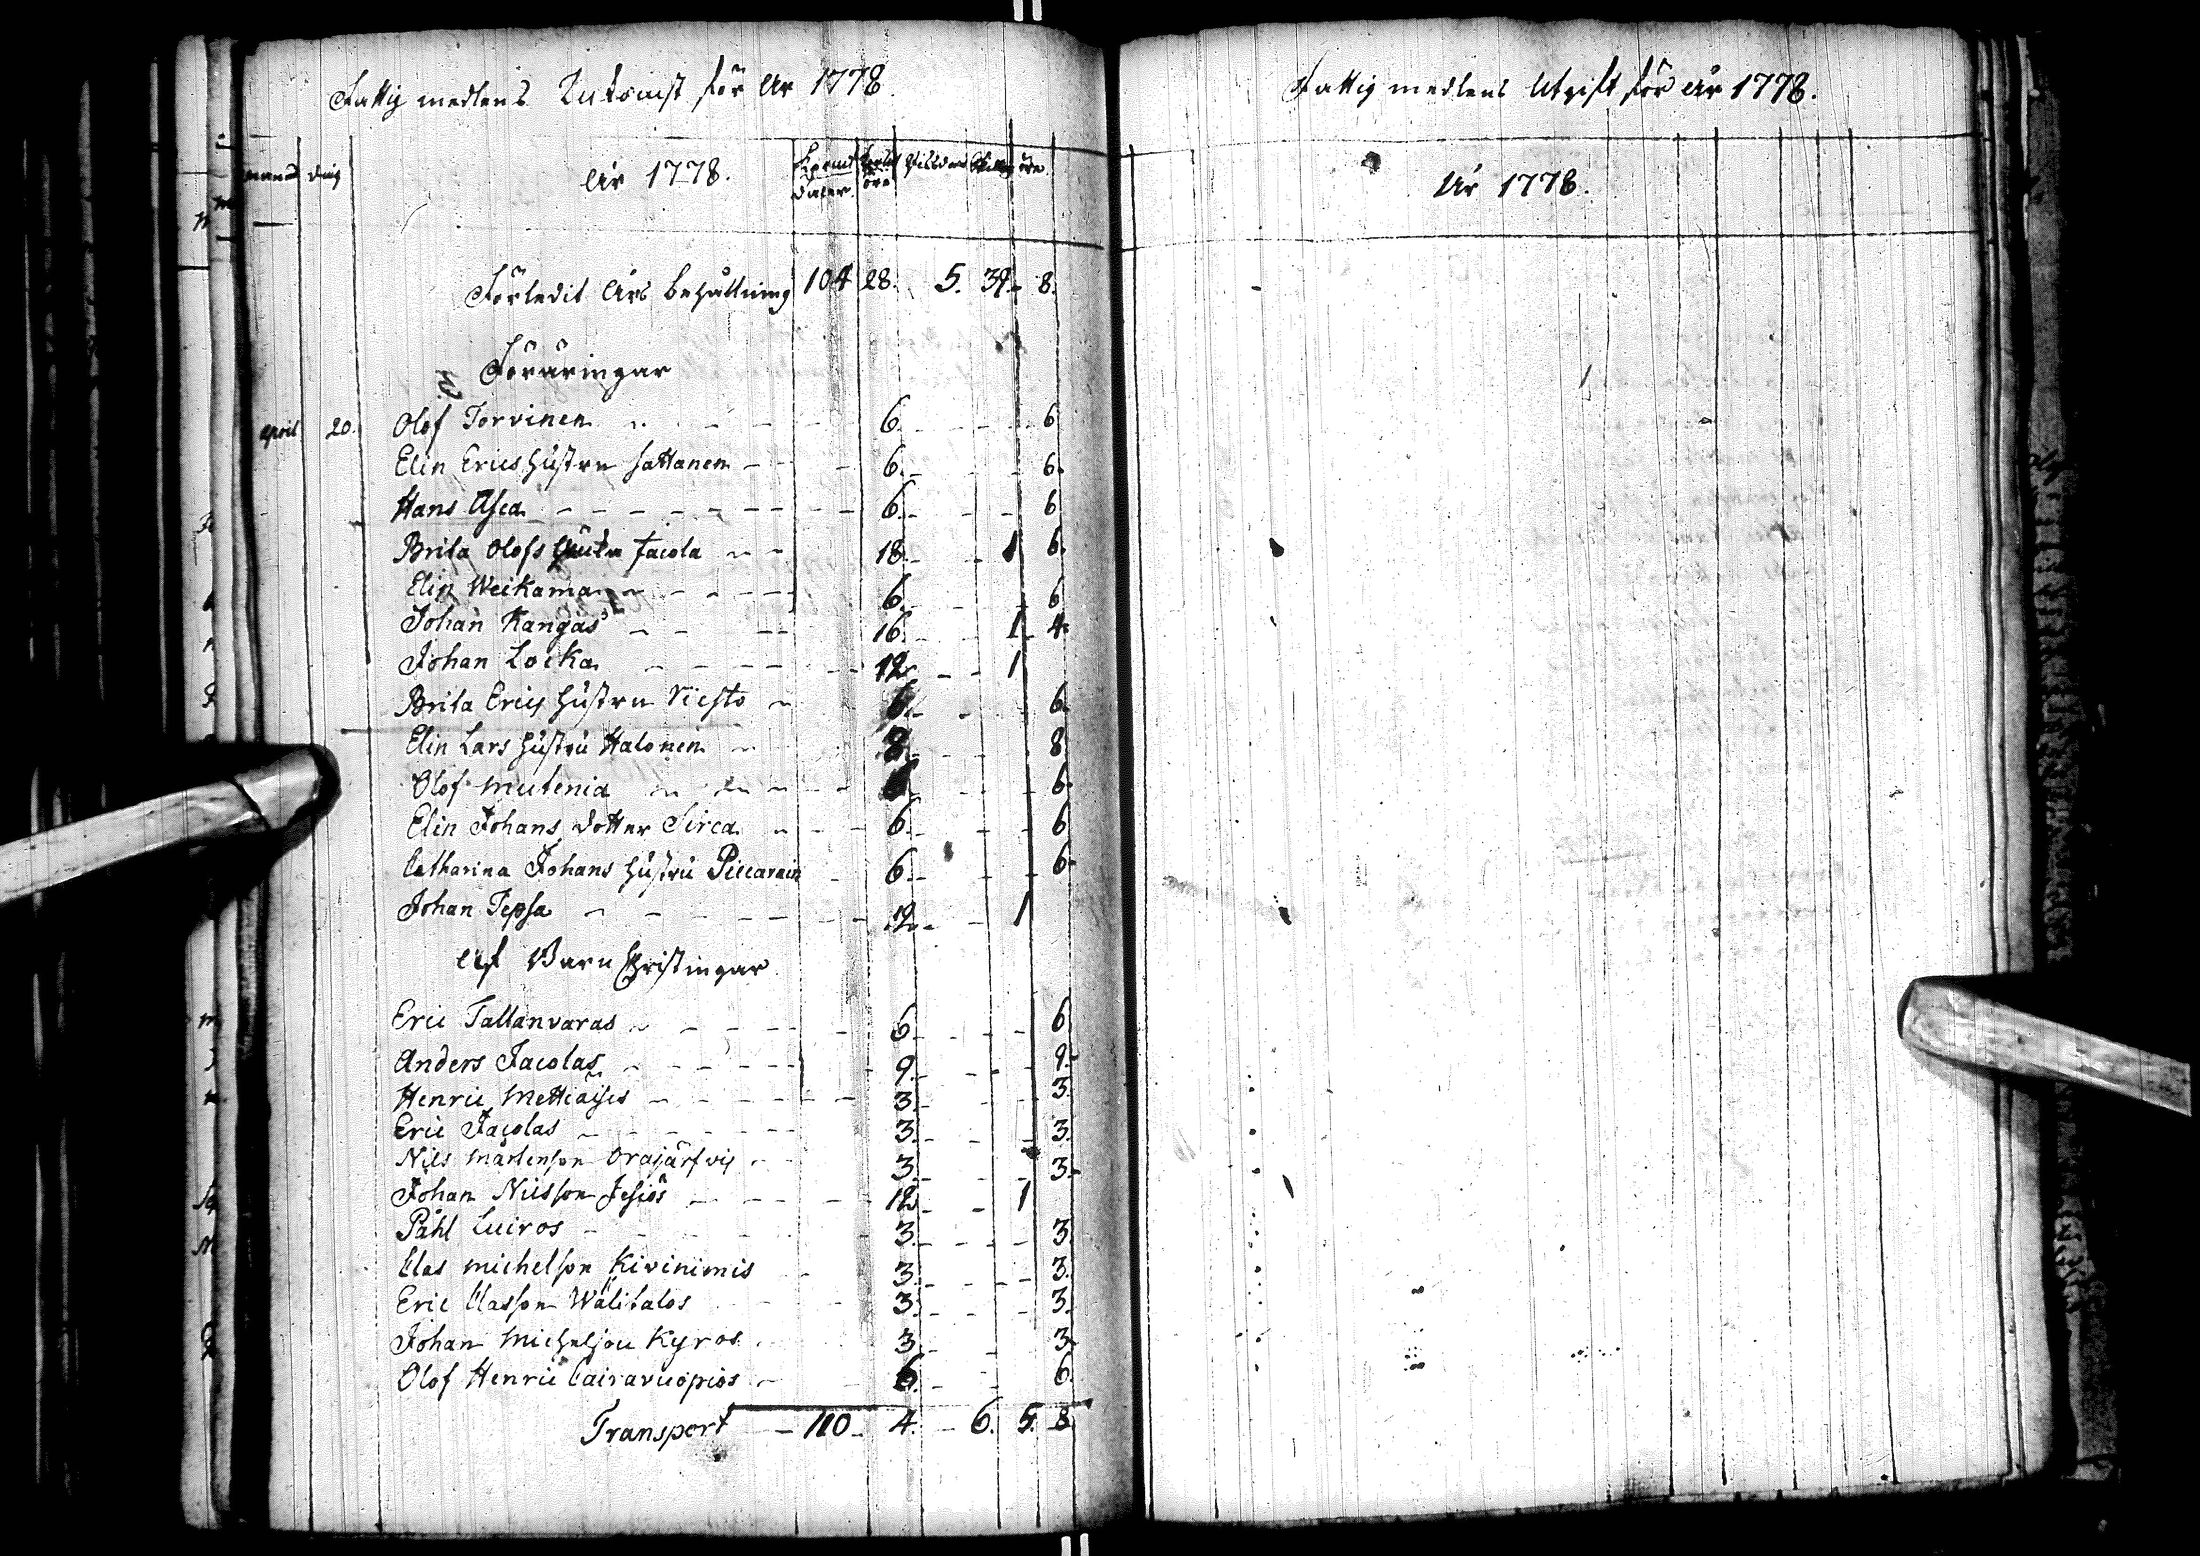 Fattig medlens Inkomst för År 1778.
månad dag År 1778. Kopmt daler öre Riksdaler Skilling öre.
Förledit Års behållning 104 28. 5. 39. 8.
Föräringar
April 20. Olof Torvinen 6. 6
Elin Erics hustru Sattanen 6. 6.
Hans Asca 6. 6
Brita Olofs Jacola 18. 1 6.
Elin Weikama 6. 6
Johan Kangas 16. 1. 4.
Johan Locka 12. 1
Brita Erics hustru Riesto 6. 6.
Elin Lars hustru Halonen 8. 8.
Olof Mutenia 6. 6.
Elin Johans dotter Sirca 6. 6
Catharina Johans hustru Piccarain 6. 6.
Johan Tepsa 12. 1
Af Barn Christingar
Eric Tallanvaras 6. 6
Anders Jacolas 9. 9.
Henric Mettiaises 3. 3.
Eric Jacolas 3. 3.
Nils Mårtenson Orajärfvis 3. 3.
Johan Nilsson Jesiös 12. 1
Påhl Luiros 3. 3.
Clas Michelson Kivinimis 3. 3.
Eric Classon Wälitalos 3. 3.
Johan Michelson Kyros 3. 3.
Olof Henric Cairavuopios 6. 6.
Transport 110. 4. 6. 5. 8.
Fattig medlens Utgift för år 1778.
År 1778.